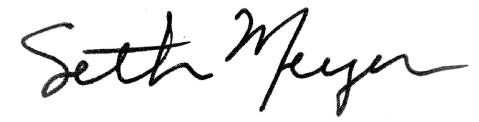 Seth Meyer